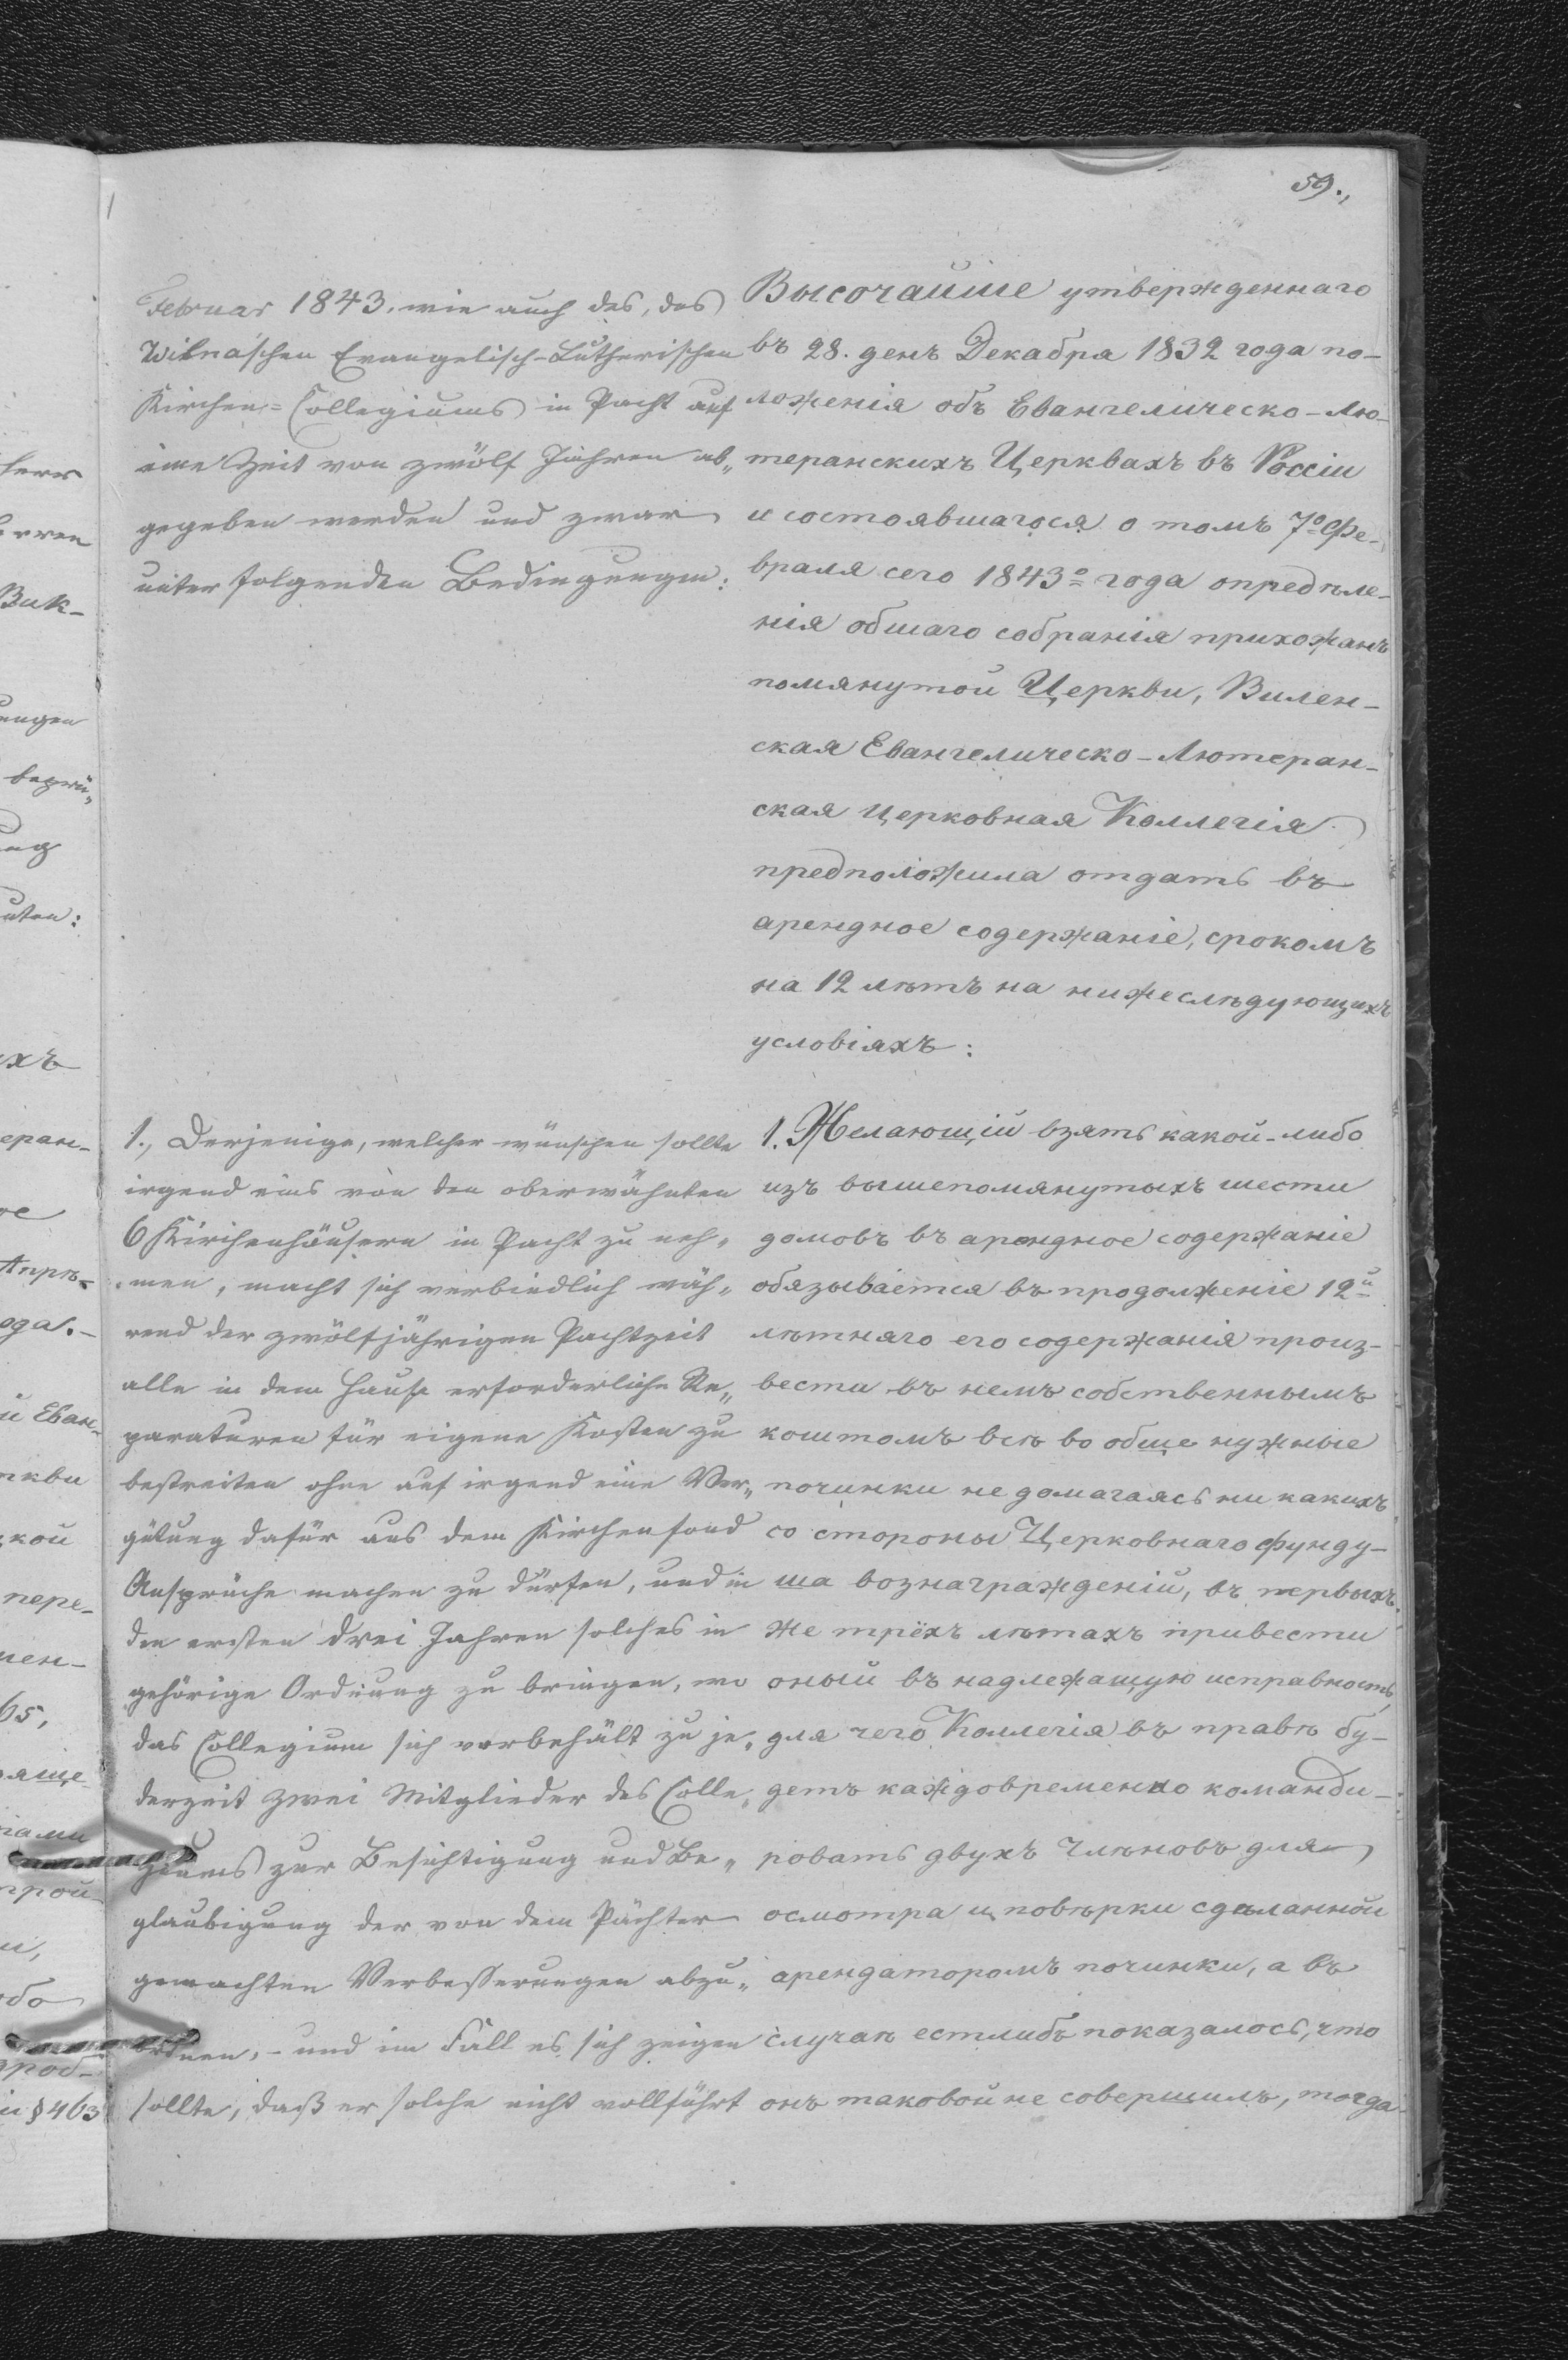 59.,
Februar 1843. wie auch des, des
Wilna'schen Evangelisch-Lutherischen
Kirchen-Collegiums in Pacht auf
eine Zeit von zwölf Jahren ab„
gegeben werden und zwar
unter folgenden Bedingungen:
1., Derjenige, welcher wünschen sollte
irgend eins von den oberwähnten
6 Kirchenhäusern in Pacht zu neh„
men, macht sich verbindlich wäh„
rend der zwölfjährigen Pachtzeit
alle in dem Hause erforderliche Re„
paraturen für eigene Kosten zu
bestreiten ohne auf irgend eine Ver„
gütung dafür aus dem Kirchenfond
Ansprüche machen zu dürfen, und in
den ersten drei Jahren solches in
gehörige Ordnung zu bringen, wo
das Collegium sich vorbehält zu je„
derzeit zwei Mitglieder des Colle„
giums zur Besichtigung und Be„
glaubigung der von dem Pächter
gemachten Verbesserungen abzu„
ordnen, - und im Fall es sich zeigen
sollte, daß er solche nicht vollführt
Высочайше утвержденнаго
въ 28. день Декабря 1832 года по-
ложенія объ Евангелическо-Лю-
теранскихъ Церквахъ въ Россіи
и состоявшагося о томъ 7º Фе-
враля сего 1843º года опредѣле-
нія общаго собранія прихожанъ
помянутой Церкви, Вилен-
ская Евангелическо-Лютеран-
ская церковная Коллегія
предположила отдать въ
арендное содержаніе, срокомъ
на 12 лѣтъ на нижеслѣдующихъ
условіяхъ:
1. Желающій взять какой-либо
изъ вышепомянутыхъ шести
домовъ въ арендное содержаніе
обязывается въ продолженіе 12и
лѣтняго его содержанія произ-
вести въ немъ собственнымъ
коштомъ всѣ во обще нужные
починки не домагаясь ни какихъ
со стороны Церковнаго фунду-
ша вознагражденій, въ первыхъ
же трёхъ лѣтахъ привести
оный въ надлежащую исправность,
для чего Коллегія въ правѣ бу-
детъ каждовременно команди-
ровать двухъ Членовъ для
осмотра и повѣрки сдѣланной
арендаторомъ починки, а въ
случаѣ естлибъ показалось, что
онъ таковой не совершилъ, тогда